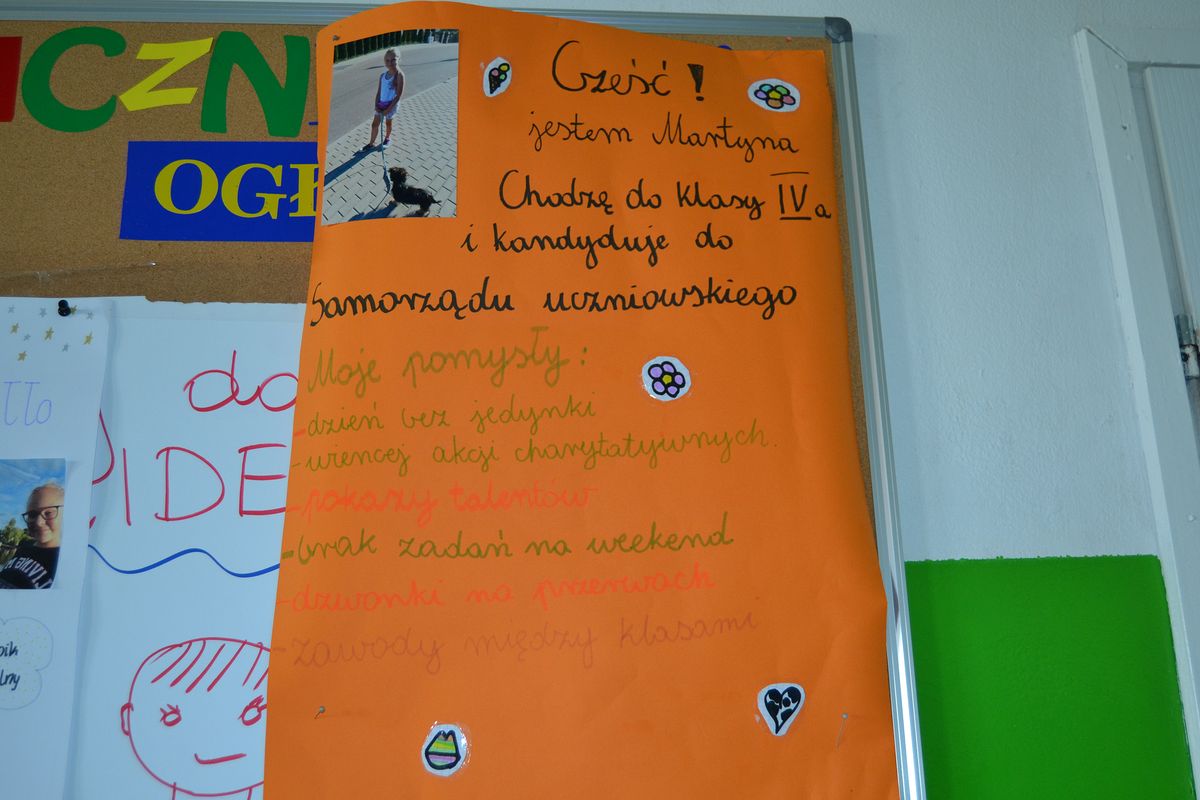 CZN
OGŁ
Cześć!
jestem Martyna
Chodzę do klasy IVa
i kandyduje do
Samorządu uczniowskiego
Moje pomysły:
-dzień bez jedynki
-wiencej akcji charytatywnych.
-pokazy talentów
-brak zadań na weekend
-dzwonki na przerwach
-zawody między klasami
do
IDE